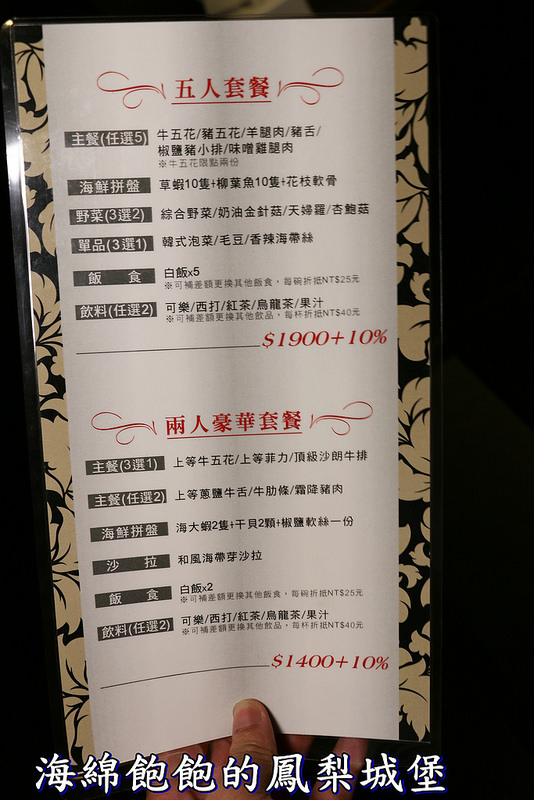 五人套餐
主餐(任選5) 牛五花/豬五花/羊腿肉/豬舌/
椒鹽豬小排/味噌雞腿肉
※牛五花限點兩份
海鮮拼盤 草蝦10隻+柳葉魚10隻+花枝軟骨
野菜(3選2) 綜合野菜/奶油金針菇/天婦羅/杏鮑菇
單品(3選1) 韓式泡菜/毛豆/香辣海帶絲
飯 食 白飯x5
※可補差額更換其他飯食，每碗折抵NT$25元
飲料(任選2) 可樂/西打/紅茶/烏龍茶/果汁
※可補差額更換其他飲品，每杯折抵NT$40元
$1900+10%
兩人豪華套餐
主餐(3選1) 上等牛五花/上等菲力/頂級沙朗牛排
主餐(任選2) 上等蔥鹽牛舌/牛肋條/霜降豬肉
海鮮拼盤 海大蝦2隻+干貝2顆+椒鹽軟絲一份
沙 拉 和風海帶芽沙拉
飯 食 白飯x2
※可補差額更換其他飯食，每碗折抵NT$25元
飲料(任選2) 可樂/西打/紅茶/烏龍茶/果汁
※可補差額更換其他飲品，每杯折抵NT$40元
$1400+10%
海綿飽飽的鳳梨城堡